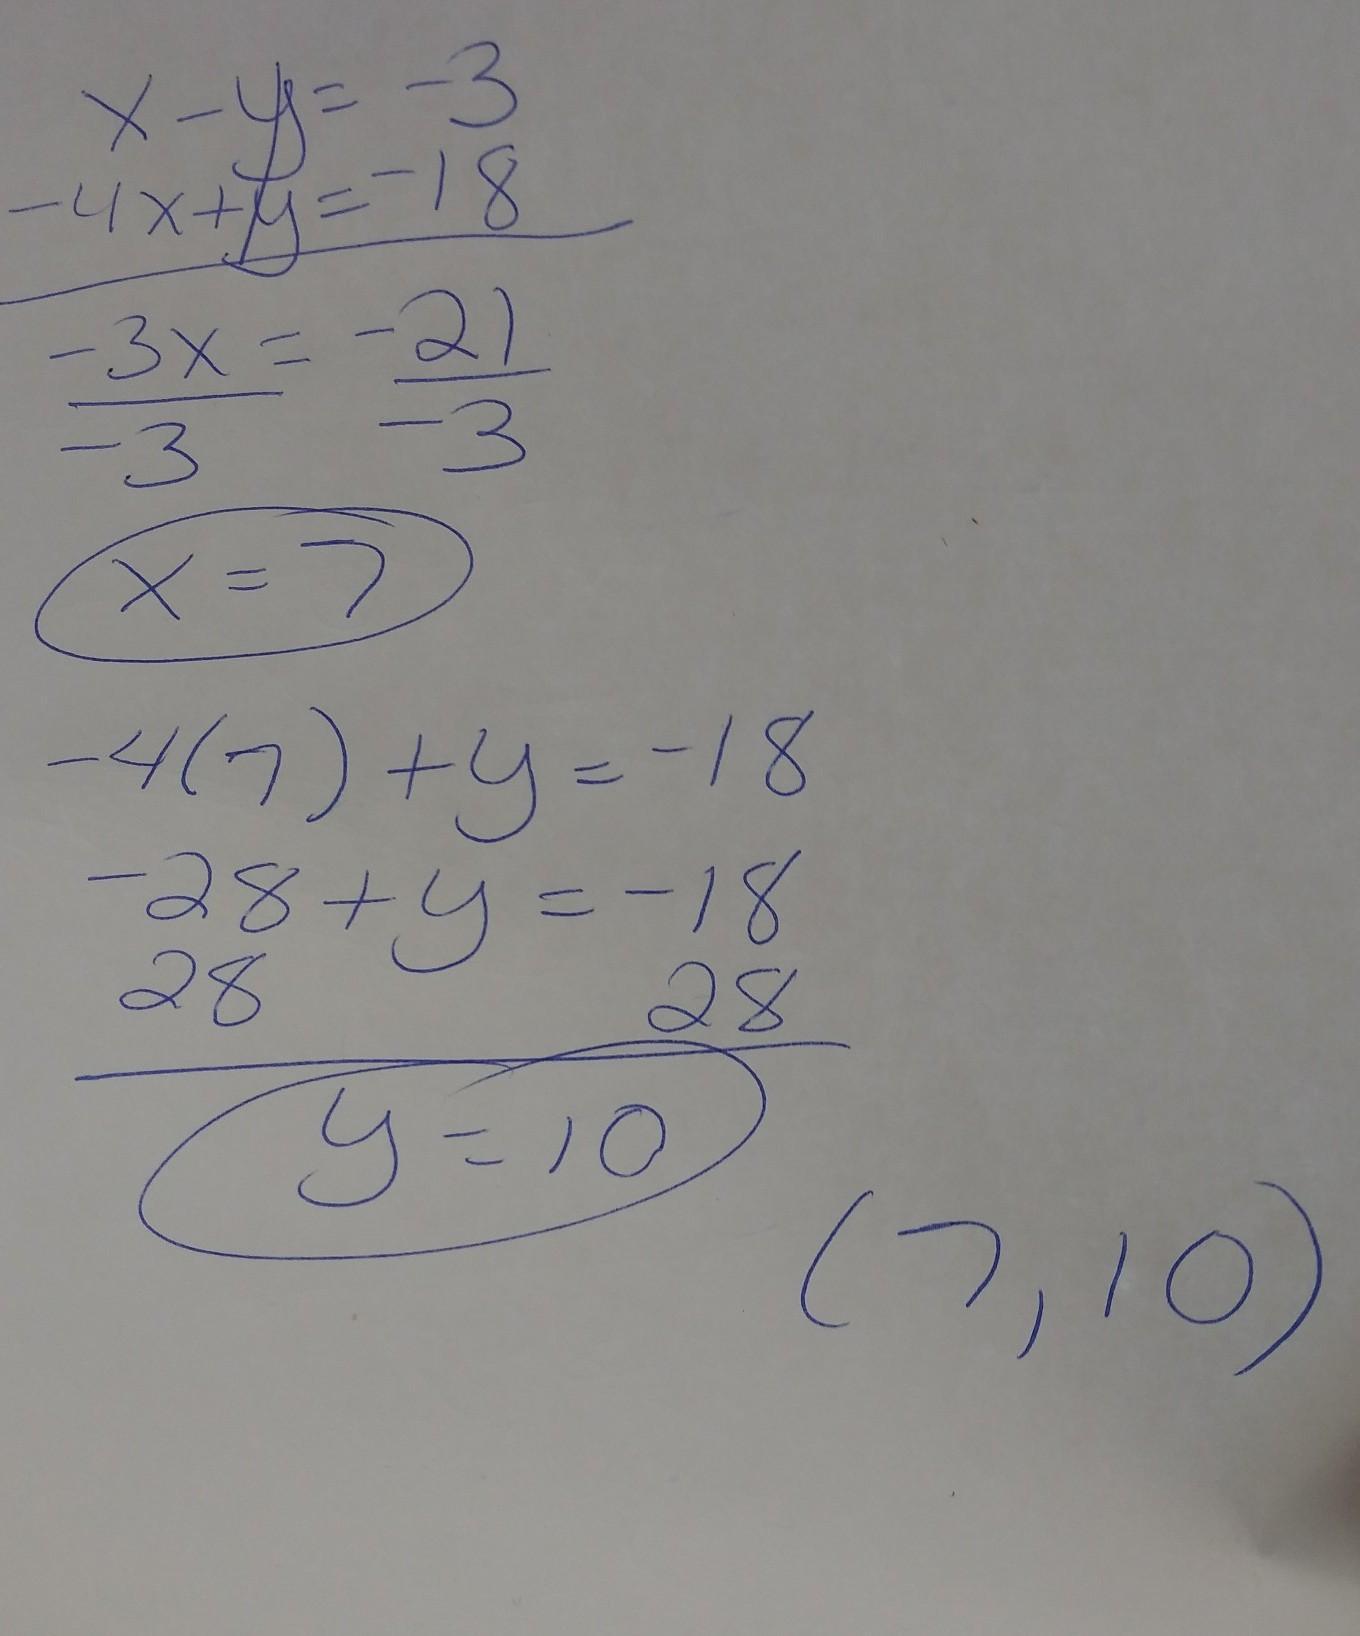 x-y= -3
-4x+y=-18
-3x = -21
-3 -3
x = 7
-4(7) +y = -18
-28 + y = -18
28 28
y = 10
(7, 10)